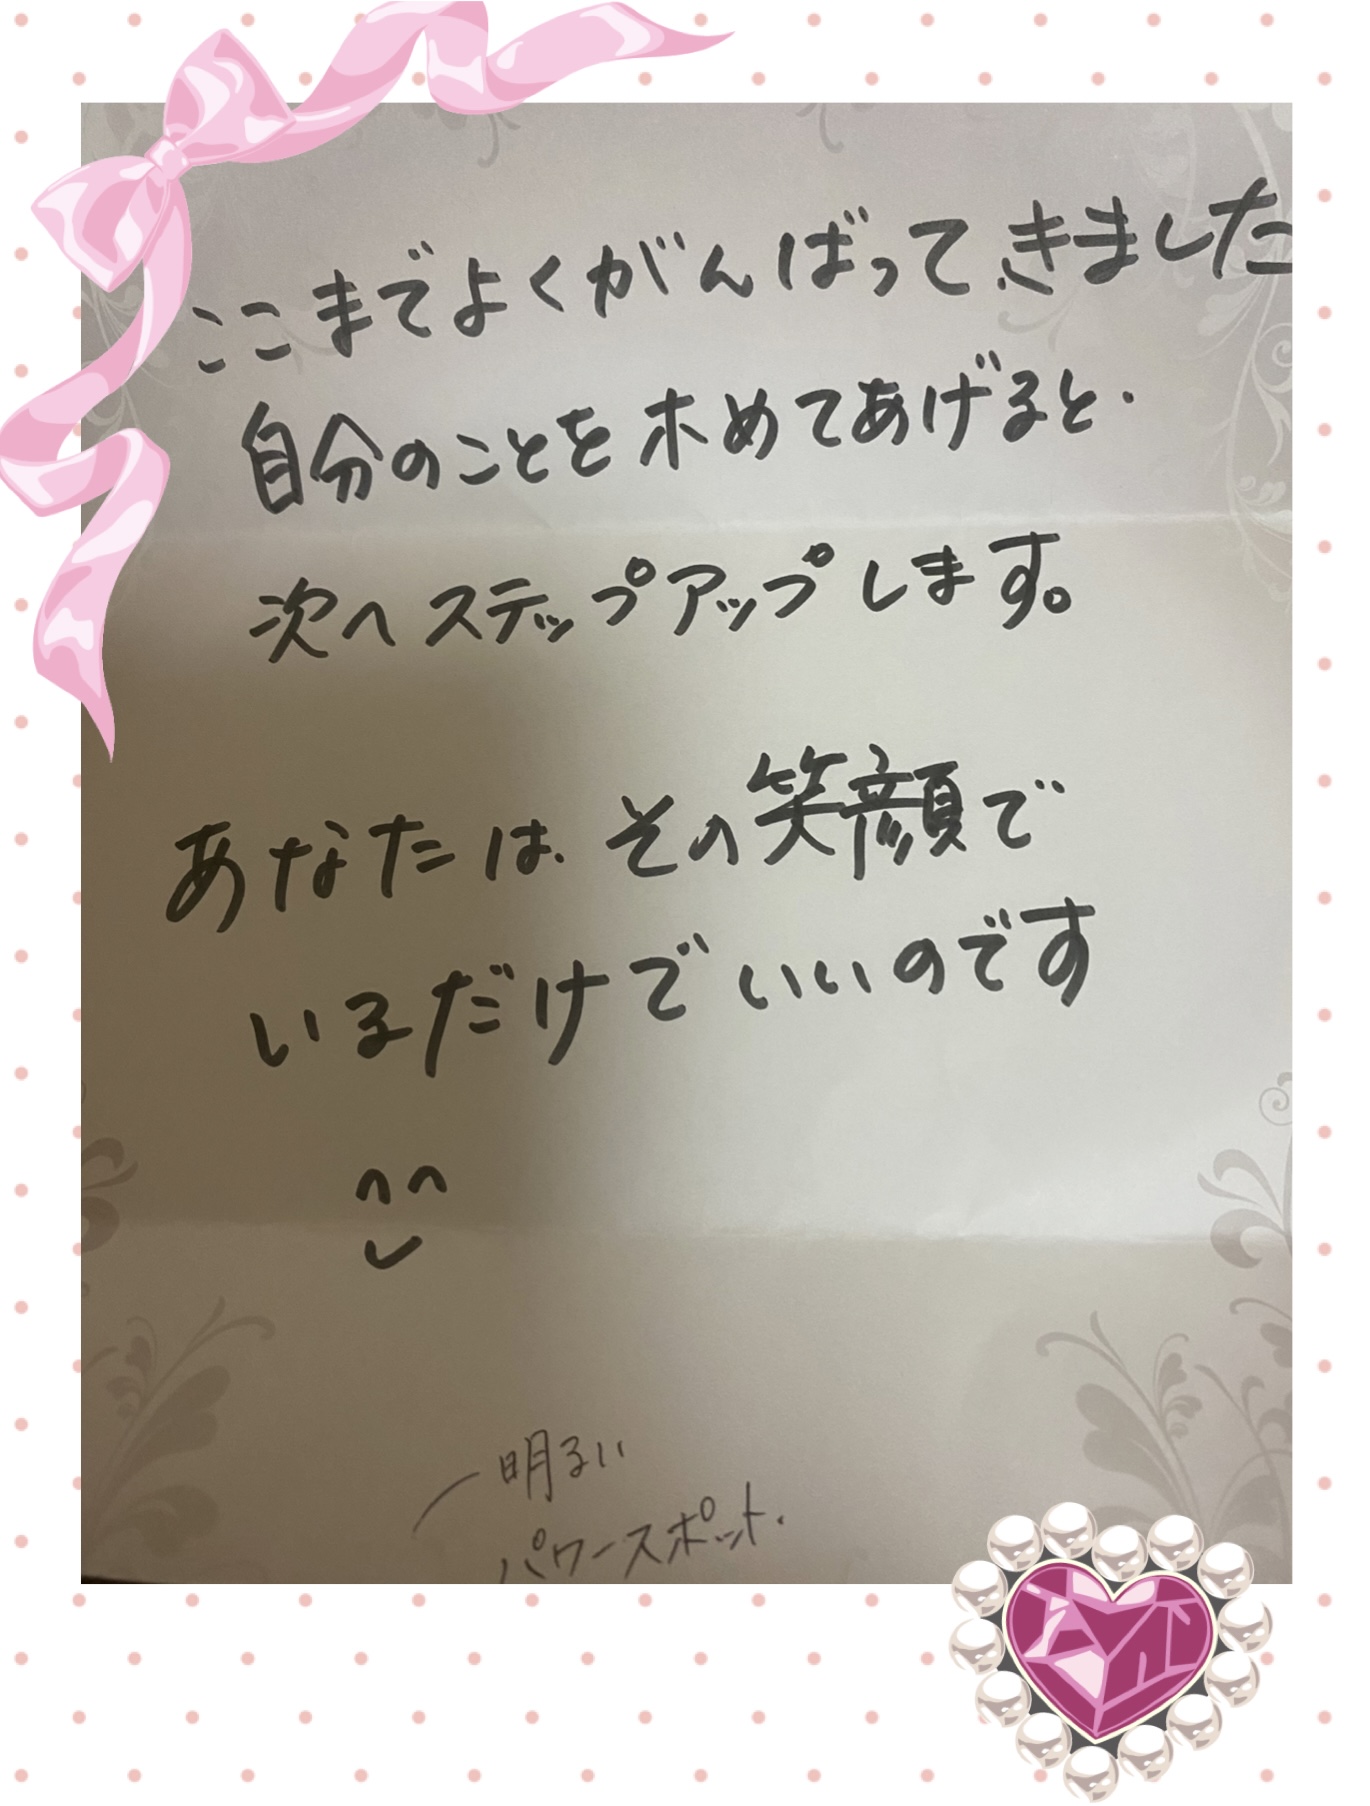 ここまでよくがんばってきました
自分のことをホめてあげると.
次へステップアップします。
あなたは、その笑顔で
いるだけでいいのです
明るい
パワースポット.